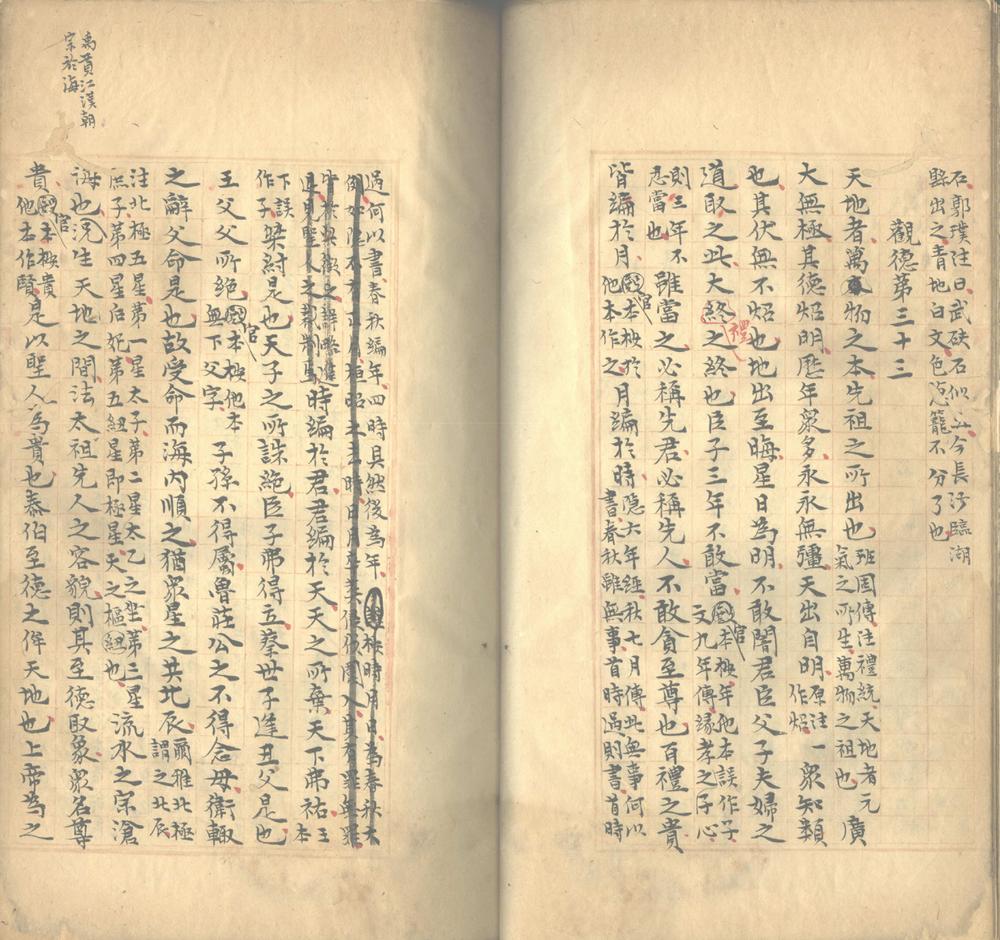 石郭璞注曰武砆石似玉今長沙臨湖
縣出之青地白文色蔥蘢不分了也
觀德第三十三
天地者萬物之本先祖之所出也班固傳注禮統天地者元氣之所生萬物之祖也廣
大無極其德炤明歷年眾多永永無彊天出自明原注作炤一眾知類
也其伏無不炤也地出至晦星日為明不敢闇君臣父子夫婦之
道取之此大終之終也臣子三年不敢當官本按年他本誤作子文九年傳緣孝子之心
禮
則三年不忍當也雖當之必稱先君必稱先人不敢貪至尊也百禮之貴
皆編於月官本按於他本作之月編於時隱六年經秋七月傳此無事何以書春秋雖無事首時過則書首時
過何以書春秋編年四時具然後為年
時編於君君編於天天之所棄天下弗祐
下誤作子桀紂是也天子之所誅絕臣子弗得立蔡世子逢丑父是也
王父父所絕官本按他本無下父字子孫不得屬魯莊公之不得念母衛輒
之辭父命是也故受命而海內順之猶眾星之共北辰爾雅北極謂之北辰
注北極五星第一星太子第二星太乙之坐第三星庶子第四星后妃第五紐星即極星天之樞紐也流水之宗滄
海也況生天地之間法太祖先人之容貌則其至德取象眾名尊
貴官本按貴他本作賢是以聖人為貴也泰伯至德之侔天地也上帝為之
禹貢江漢朝
宗於海